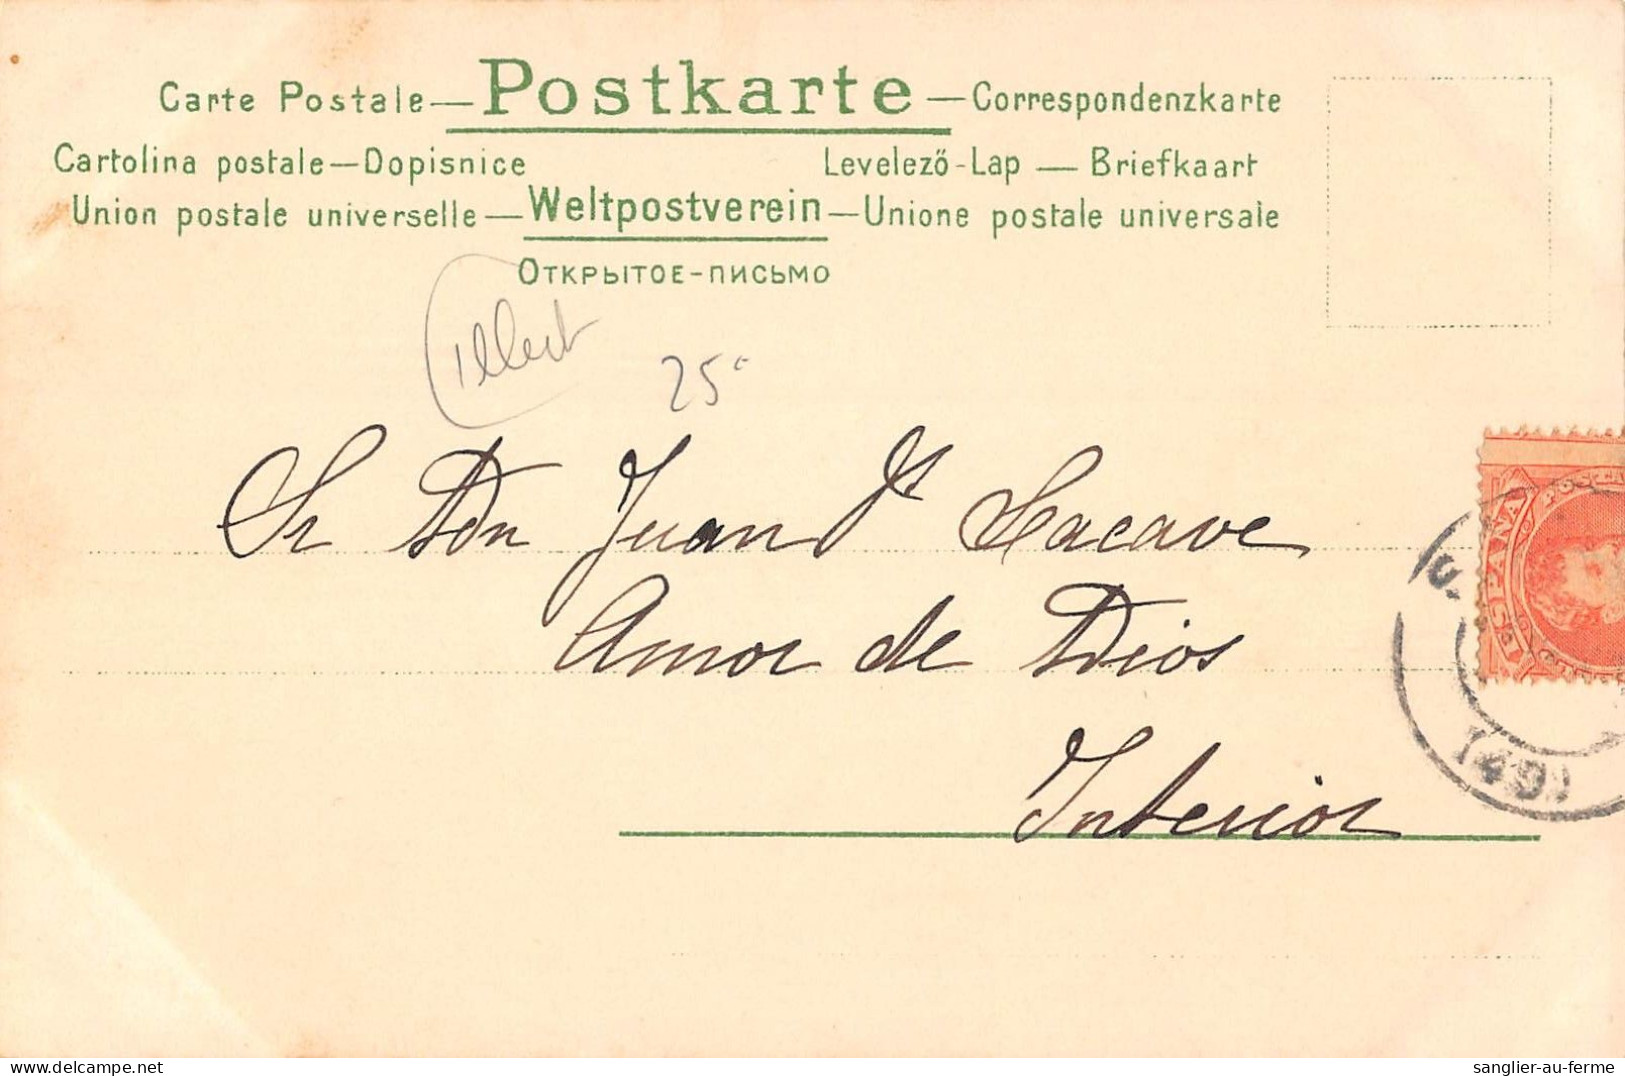 Carte Postale — Postkarte — Correspondenzkarte
Cartolina postale — Dopisnice Levelező-Lap — Briefkaart
Union postale universelle — Weltpostverein — Unione postale universale
Открытое-письмо
25c
Sr Don Juan Js Lacave
Amor de Dios
Interior
ESPAÑA
sanglier-au-ferme